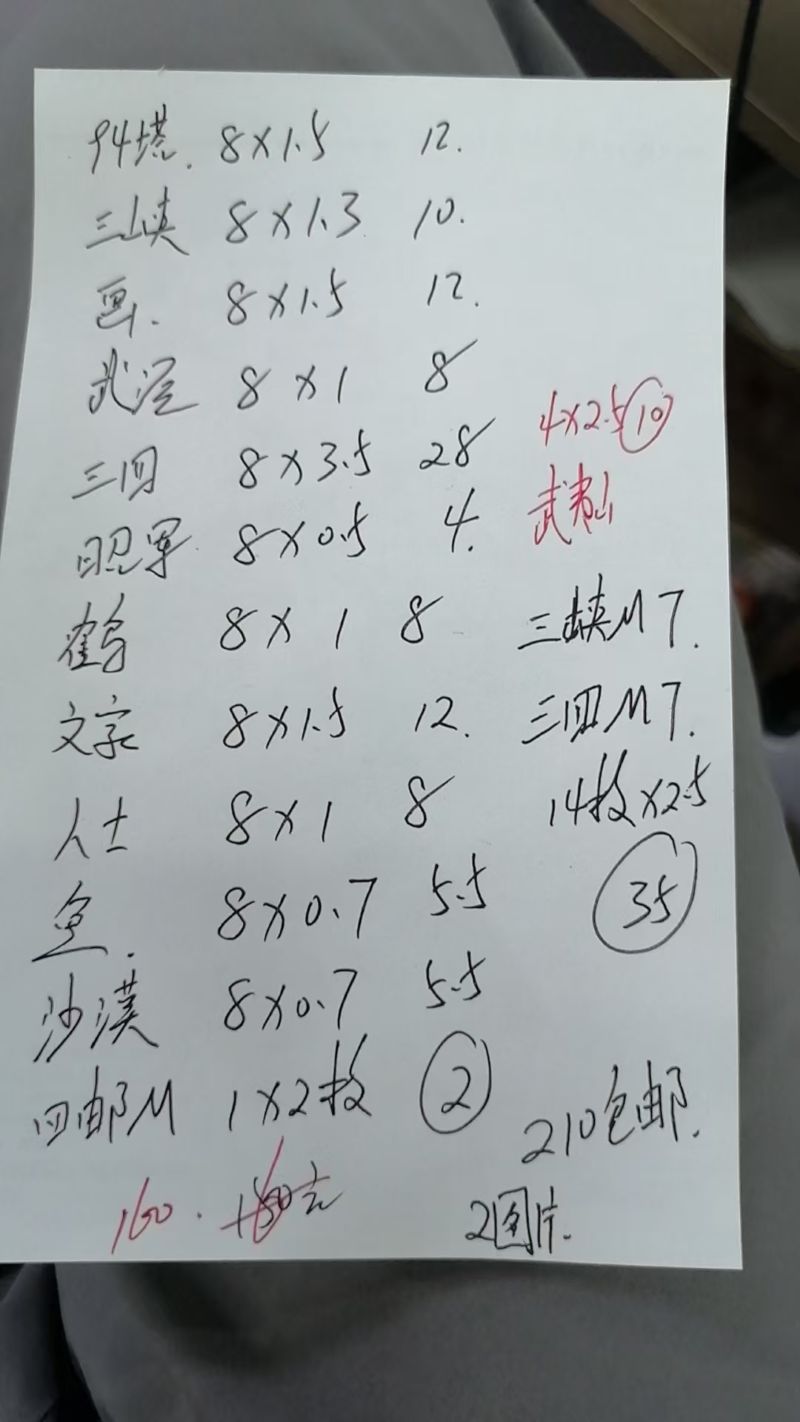 94塔. 8×1.5 12.
三峡 8×1.3 10.
画. 8×1.5 12.
武汉 8×1 8
4×2.5 10
三四 8×3.5 28
武夷山
昭军 8×0.5 4.
鹤 8×1 8
三峡M 7.
文字 8×1.5 12.
三四M 7.
人士 8×1 8
14枚×2.5
鱼. 8×0.7 5.5
35
沙漠 8×0.7 5.5
四邮M 1×2枚 2
210包邮.
160.
2图片.